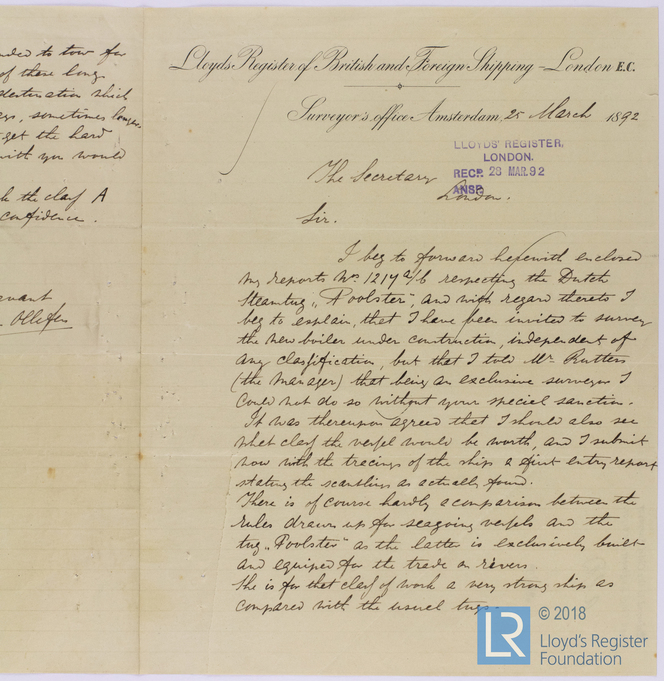 nded to tow for
of these long
destination which
ays, sometimes longer,
get the hard
with you would
the class A
confidence.
vant
Olleften
Lloyds Register of British and Foreign Shipping - London E.C.
Surveyor's office Amsterdam, 25 March 1892
LLOYDS' REGISTER,
LONDON.
RECD. 28 MAR. 92
ANSD.
The Secretary
London.
Sir.
I beg to forward herewith enclosed
my reports No. 1217 a/b respecting the Dutch
Steamtug „Poolster", and with regard thereto I
beg to explain, that I have been invited to survey
the new boiler under construction, independent of
any classification, but that I told Mr. Rutten
(the manager) that being an exclusive surveyor I
could not do so without your special sanction.
It was thereupon agreed that I should also see
what class the vessel would be worth and I submit
now with the tracings of the ships a first entry report
stating the scantlings as actually found.
There is of course hardly a comparison between the
rules drawn up for seagoing vessels and the
tug „Poolster" as the latter is exclusively built
and equiped for the trade on rivers.
She is for that class of work a very strong ship as
compared with the usual tugs.
LR
© 2018
Lloyd's Register
Foundation